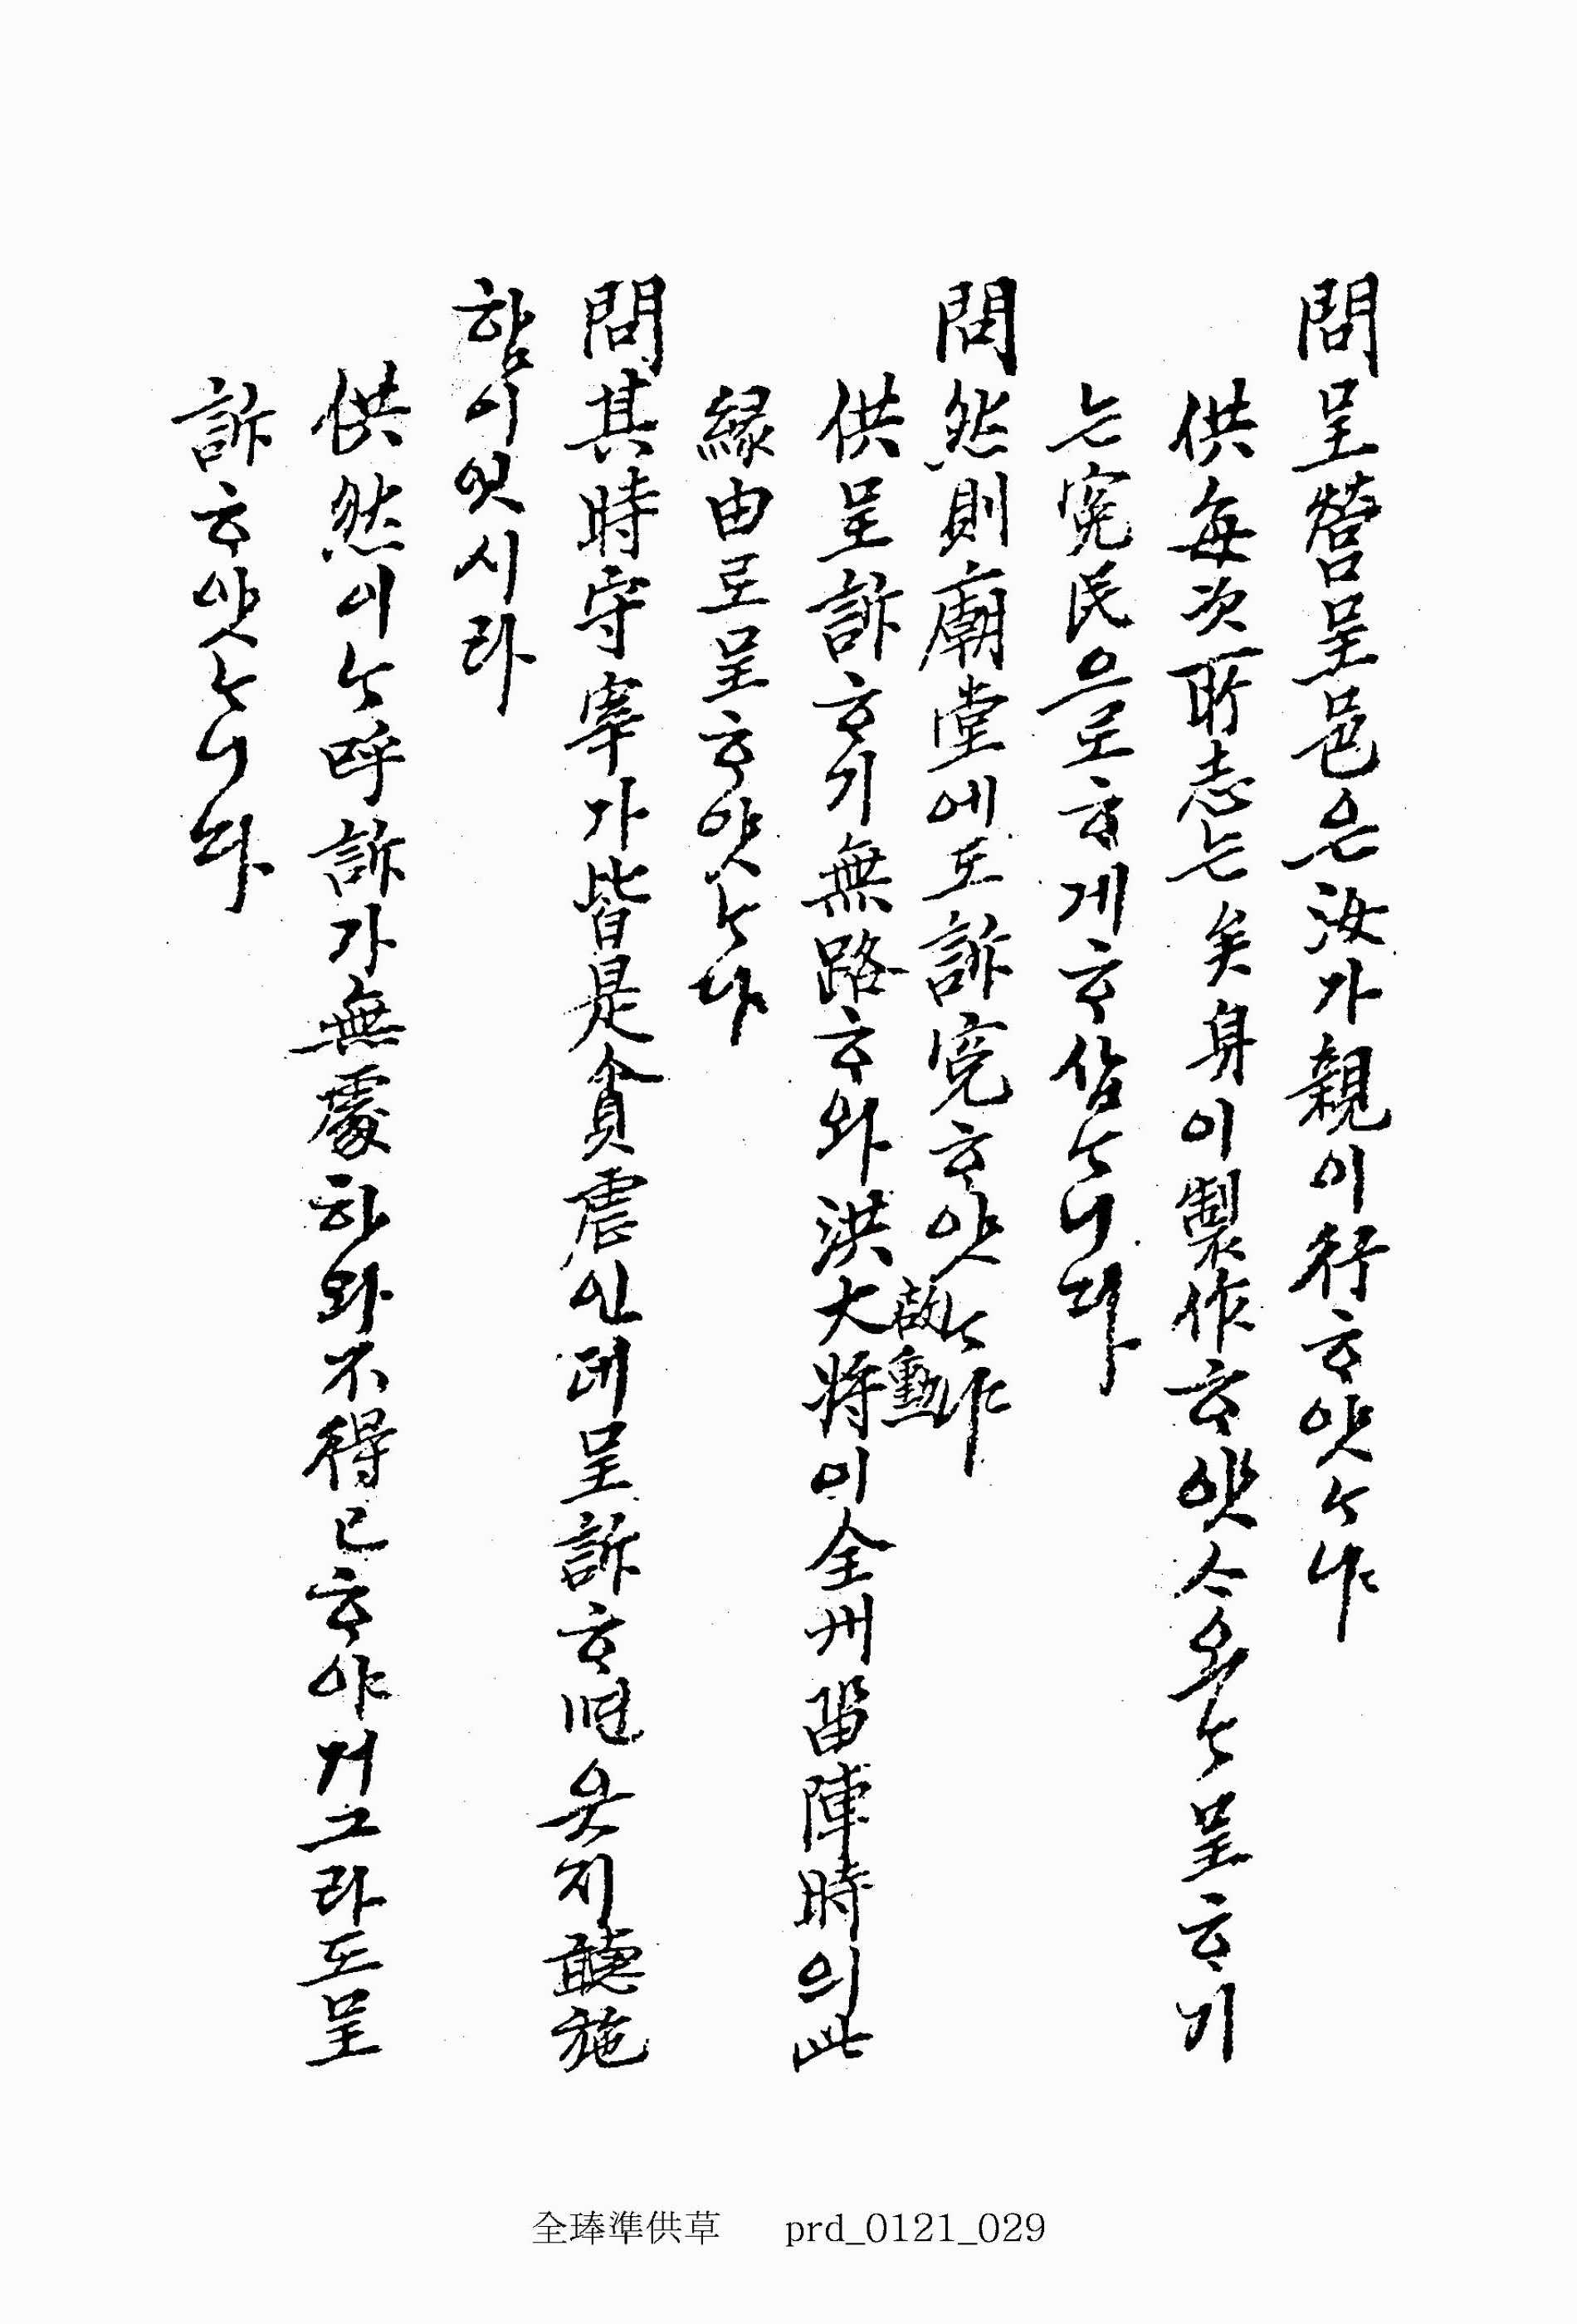 問呈營呈邑은汝가親이行ᄒᆞ얏ᄂᆞ냐
供每次所志ᄂᆞᆫ矣身이製作ᄒᆞ얏ᄉᆞ오ᄂᆞ呈ᄒᆞ기
ᄂᆞᆫ寃民으로ᄒᆞ게ᄒᆞ얏ᄂᆞ니다
問然則廟堂에도訴寃ᄒᆞ얏ᄂᆞ냐
供呈訴ᄒᆞ기無路ᄒᆞ와洪大將이全州留陣時의此
啟勳
緣由로呈ᄒᆞ얏ᄂᆞ다
問其時守宰가皆是貪虐인데呈訴ᄒᆞᆫ덜웃지聽施
함이잇시랴
供然이ᄂᆞ呼訴가無處하와不得已ᄒᆞ야거그라도呈
訴ᄒᆞ얏ᄂᆞ니다
全琫準供草 prd_0121_029